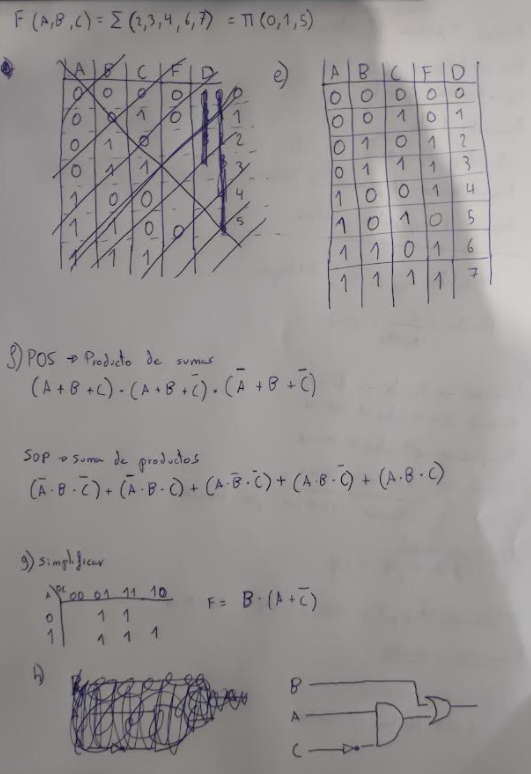 F (A,B,C) = Σ (2,3,4,6,7) = Π (0,1,5)
A B C F D
0 0 0 0 0
0 0 1 0 1
0 1 0 2
0 1 1 3
1 0 0 4
1 0 1 5
1 1 0 0
1 1 1
e)
A B C F D
0 0 0 0 0
0 0 1 0 1
0 1 0 1 2
0 1 1 1 3
1 0 0 1 4
1 0 1 0 5
1 1 0 1 6
1 1 1 1 7
f) POS → Producto de sumas
(A + B + C) · (A + B + C̄) · (Ā + B + C̄)
SOP → suma de productos
(Ā · B · C̄) + (Ā · B · C) + (A · B̄ · C̄) + (A · B · C̄) + (A · B · C)
g) Simplificar
A\BC 00 01 11 10
0 1 1
1 1 1 1
F = B · (A + C̄)
h)
B
A
C